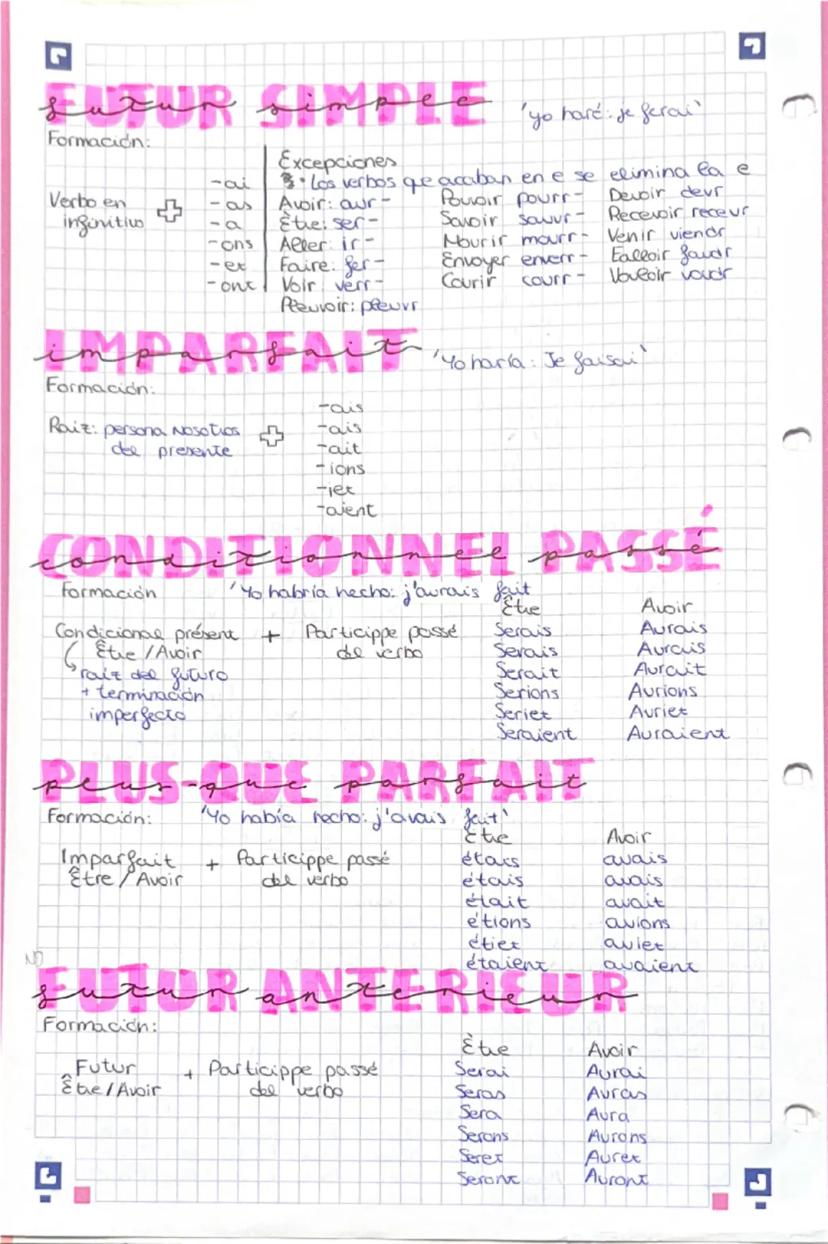 FUTUR SIMPLE
futur simple
'yo haré: je ferai'
Formación:
Verbo en
infinitivo
-ai
-as
-a
-ons
-ez
-ont
Excepciones
• Los verbos que acaban en e se elimina la e
Avoir: aur-
Être: ser-
Aller: ir-
Faire: fer-
Voir: verr-
Pleuvoir: pleuvr
Pouvoir pourr-
Savoir sauvr-
Mourir mourr-
Envoyer enverr-
Courir courr-
Devoir devr
Recevoir recevr
Venir viendr
Falloir faudr
Vouloir voudr
IMPARFAIT
imparfait
'Yo haría: Je faisai'
Formación:
Raiz: persona Nosotros
del presente
-ais
-ais
-ait
-ions
-iez
-aient
CONDITIONNEL PASSÉ
conditionnel passé
Formación
'Yo habría hecho: j'aurais fait
Condicional présent
Être/Avoir
raiz del futuro
+ terminación
imperfecto
+
Particippe passé
del verbo
Être
Serais
Serais
Serait
Serions
Seriez
Seraient
Avoir
Aurais
Aurais
Aurait
Aurions
Auriez
Auraient
PLUS-QUE PARFAIT
plus-que parfait
Formación:
'Yo había hecho: j'avais fait'
Imparfait
Être/Avoir
+
Particippe passé
del verbo
Être
étais
étais
était
étions
étiez
étaient
Avoir
avais
avais
avait
avions
aviez
avaient
NO
FUTUR ANTERIEUR
futur anterieur
Formación:
Futur
Être/Avoir
+
Particippe passé
del verbo
Être
Serai
Seras
Sera
Serons
Serez
Seront
Avoir
Aurai
Auras
Aura
Aurons
Aurez
Auront